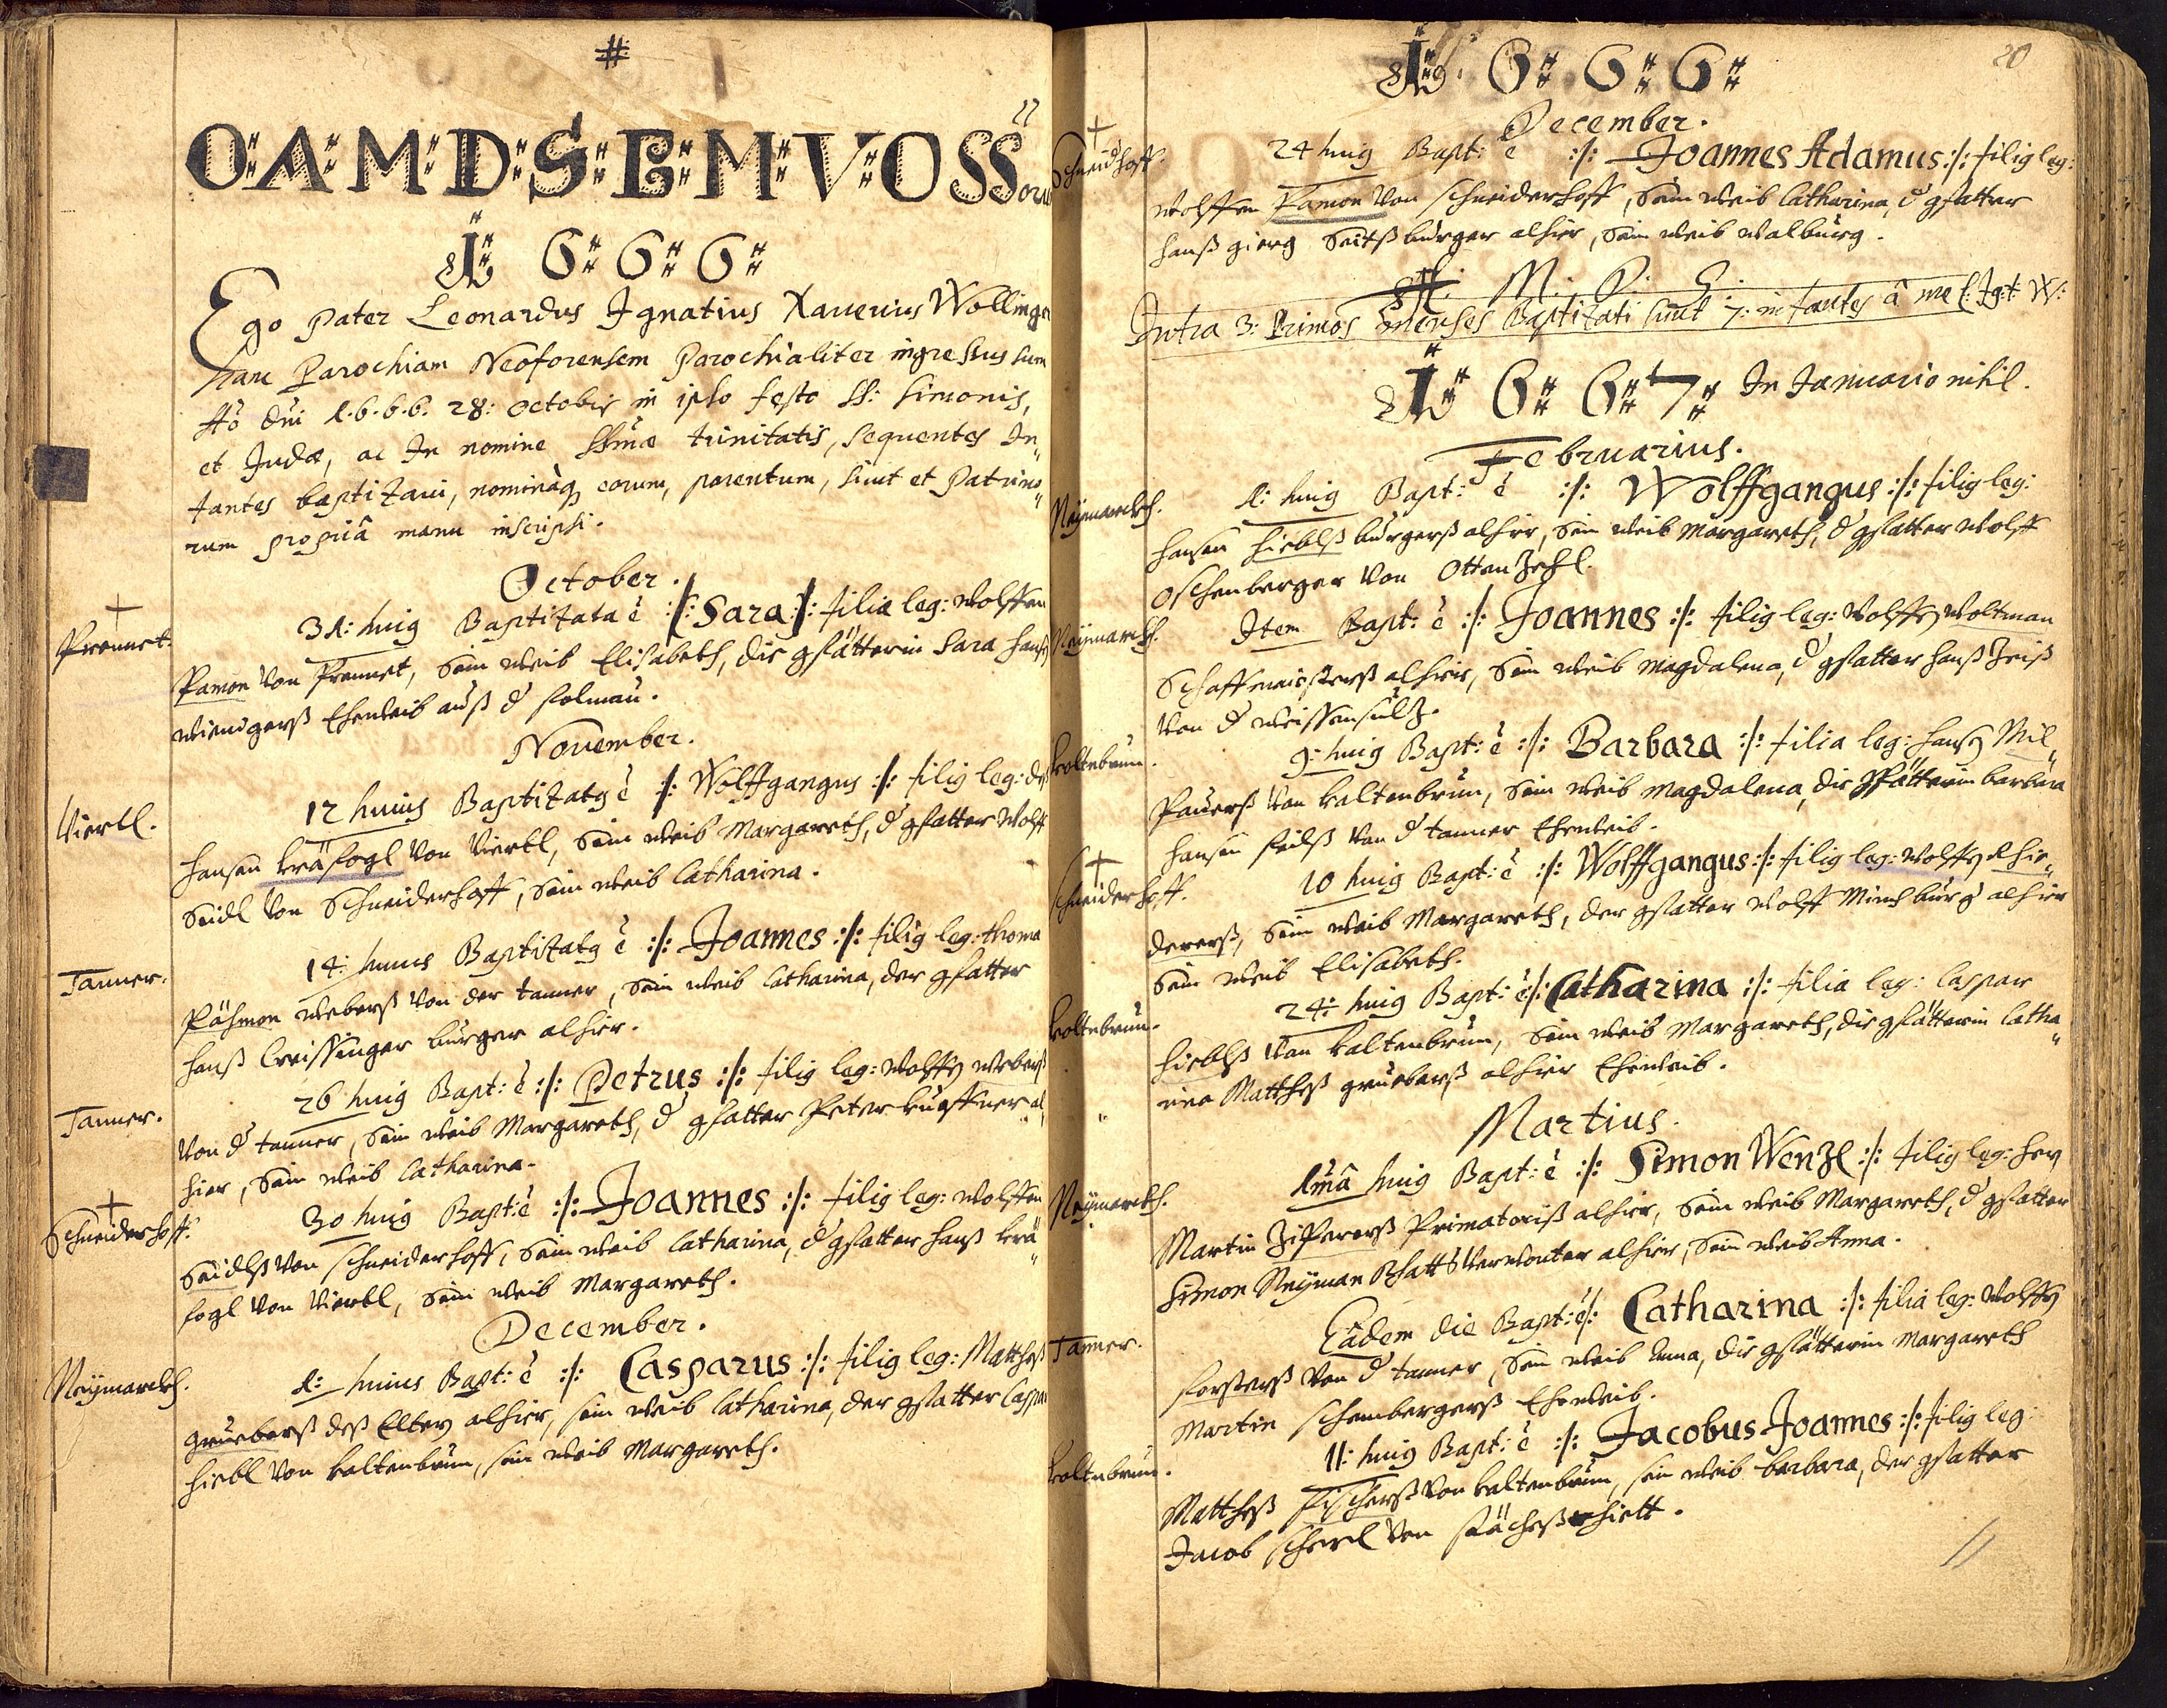 #
O A M D S B M V O SS orum
1666
Ego Pater Leonardus Ignatius Xaverius Wollinger
hanc Parochiam Neoforensem Parochialiter ingressus sum
Ao Dni 1.6.6.6. 28: Octobris in ipso festo SS: Simonis,
et Judæ, ac In nomine SSmæ trinitatis, sequentes In„
fantes baptizavi, nominaq eorum, parentum, sicut et Patrino„
rum propriâ manu inscripsi.
October.
Prennet.
31: huig Baptizata ē :/: Sara :/: filia leg: Wolffen
Pamon von Prennet, Sein weib Elisabeth, die gfätterin Sara Hansen
Ehenweib auß d
November.
Viertl.
12 huius Baptizatg ē :/: Wolffgangus :/: filig leg: deß
Hansen Kräfogl von Viertl, Sein weib Margareth, d gfatter Wolff
Seidl von Schneiderhoff, Sein weib Catharina.
Tanner.
14: huius Baptizatg ē :/: Joannes :/: filig leg: Thoma
Webers von der tanner, Sein weib Catharina, der gfatter
Hanß Creissinger burger alhier.
Tanner.
26 huig Bapt: ē :/: Petrus :/: filig leg: Wolffg Weberß
von d tanner, Sein weib Margareth, d gfatter Peter al„
hier, Sein weib Catharina.
Schneiderhoff.
30 huig Bapt: ē :/: Joannes :/: filig leg: Wolffen
Seidlß von Schneiderhoff, Sein weib Catharina, d gfatter Hanß Krä„
fogl von Viertl, Sein weib Margareth.
December.
Neymarckh.
1: huius Bapt: ē :/: Casparus :/: filig leg: Mattheß
grueberß deß Eltern alhier, sein weib Catharina, der gfatter Caspar
Hiebl von Kaltenbrun, sein weib Margareth.
20
1666
December.
Schneidhoff.
24 huig Bapt: ē :/: Joannes Adamus :/: filig leg:
Wolffen Pamon von Schneiderhoff, Sein weib Catharina, d gfatter
Hanß Gierg burger alhier, Sein weib Walburg.
A. M. D. G.
Intra 3: Primos menses Baptizati sunt 7: infantes â me L: Ig: W:
1667 In Januario nihil.
Februarius.
Neymarckh.
1: huig Bapt: ē :/: Wolffgangus :/: filig leg:
Hansen Hieblß burgerß alhier, Sein weib Margareth, d gfatter Wolff
Oschenberger von Ottenzehl.
Neymarckh.
Item Bapt: ē :/: Joannes :/: filig leg: Wolffg Woltman
Schaffmeisterß alhier, Sein weib Magdalena, d gfatter Hanß Zeiß
von d Weissensultz.
Koltnbrun.
9: huig Bapt: ē :/: Barbara :/: filia leg: Hansen Mil„
Pauerß von Kaltenbrun, Sein weib Magdalena, die gfätterin Barbara
Hansen von d tanner Ehenweib.
Schneiderhoff.
10 huig Bapt: ē :/: Wolffgangus :/: filig leg: Wolffg Rhie„
dererß, Sein weib Margareth, der gfatter Wolff burg alhier
Sein weib Elisabeth.
Koltnbrun.
24: huig Bapt: ē :/: Catharina :/: filia leg: Caspar
Hieblß von Kaltenbrun, Sein weib Margareth, die gfätterin Catha„
rina Matthß grueberß alhier Ehenweib.
Martius.
Neymarckh.
1mâ huig Bapt: ē :/: Simon Wenzl :/: filig leg: Hern
Martin Zisererß Primatoriß alhier, Sein weib Margareth, d gfatter
Simon Neyman alhier, Sein weib Anna.
Tanner.
Eâdem die Bapt: ē :/: Catharina :/: filia leg: Wolffg
Forsterß von d tanner, Sein weib Anna, die gfätterin Margareth
Martin Schambergerß Ehenweib.
Koltnbrun.
11: huig Bapt: ē :/: Jacobus Joannes :/: filig leg:
Mattheß Fischerß von Kaltenbrun, sein weib barbara, der gfatter
Jacob Scherl von
11